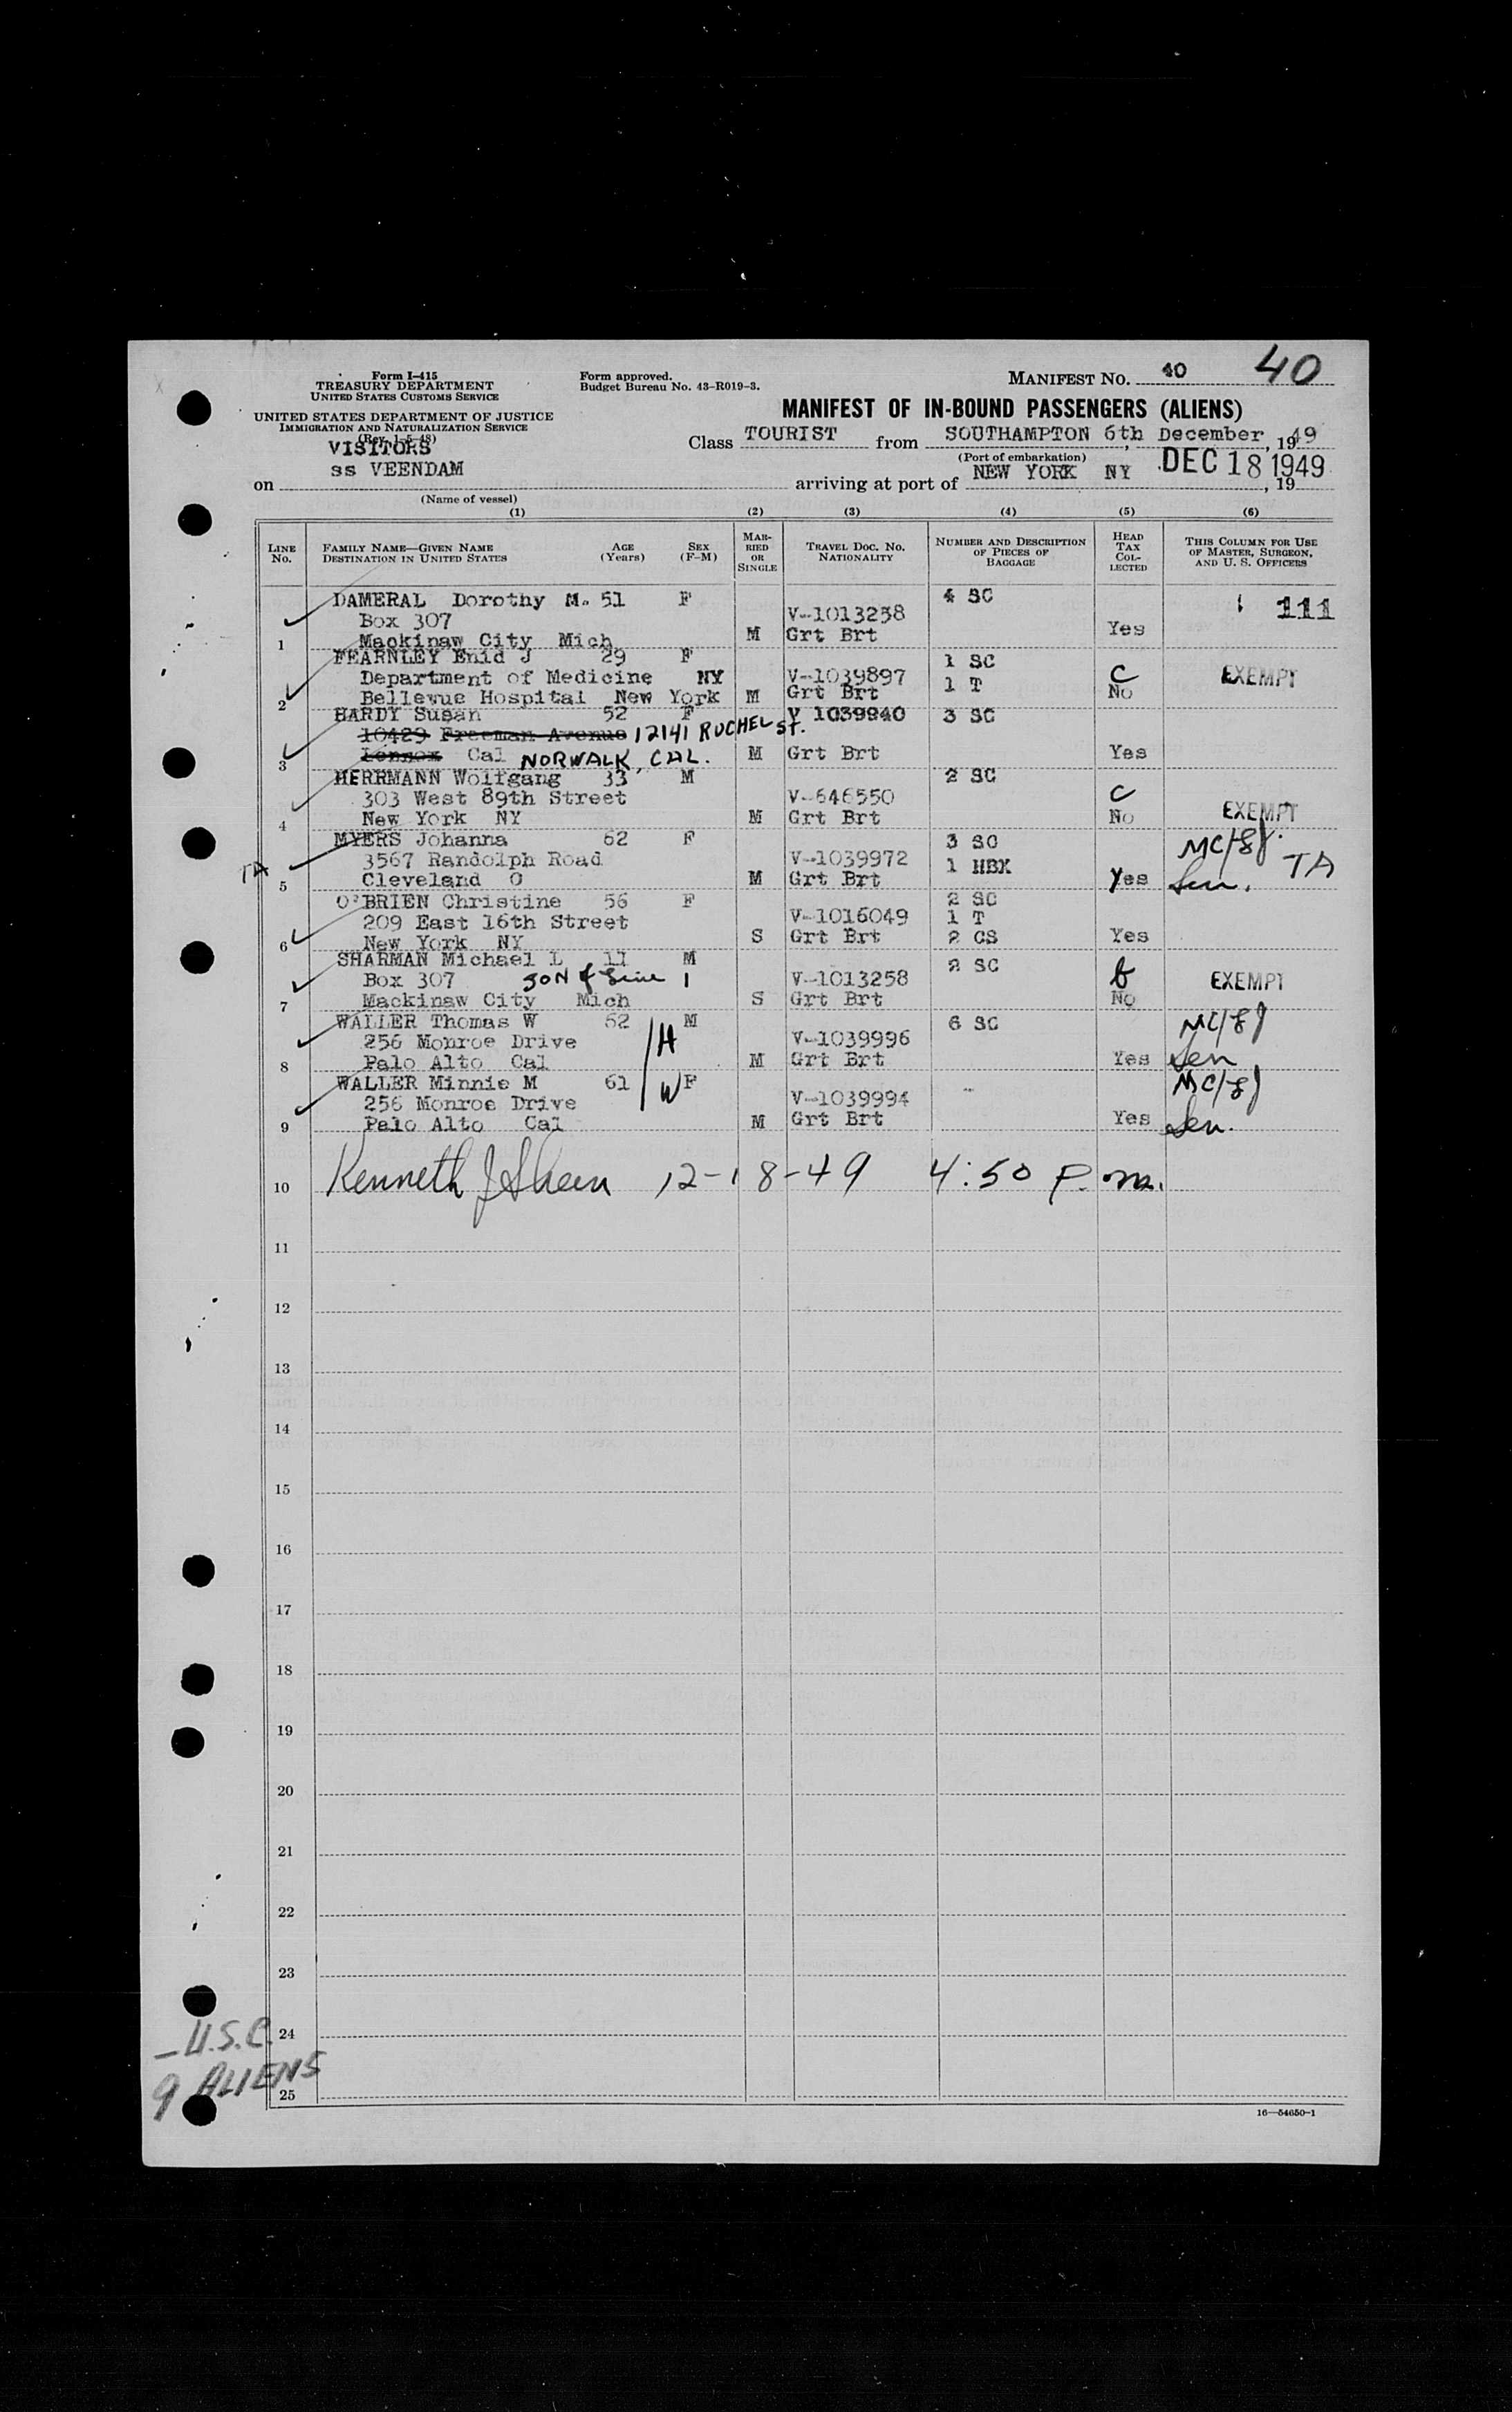 Form I-415
TREASURY DEPARTMENT
UNITED STATES CUSTOMS SERVICE
UNITED STATES DEPARTMENT OF JUSTICE
IMMIGRATION AND NATURALIZATION SERVICE
(Rev. 1-5-48)
Form approved.
Budget Bureau No. 43-R019-3.
MANIFEST No. 40 40
MANIFEST OF IN-BOUND PASSENGERS (ALIENS)
VISITORS
Class TOURIST from SOUTHAMPTON 6th December, 1949
(Port of embarkation)
on ss VEENDAM arriving at port of NEW YORK NY DEC 18 1949, 19
(Name of vessel)
(1) (2) (3) (4) (5) (6)
LINE No. FAMILY NAME—GIVEN NAME DESTINATION IN UNITED STATES AGE (Years) SEX (F-M) MARRIED OR SINGLE TRAVEL DOC. NO. NATIONALITY NUMBER AND DESCRIPTION OF PIECES OF BAGGAGE HEAD TAX COLLECTED THIS COLUMN FOR USE OF MASTER, SURGEON, AND U. S. OFFICERS
DAMERAL Dorothy M. 51 F 4 SC 111
Box 307 V-1013258
1 Mackinaw City Mich M Grt Brt Yes
FEARNLEY Enid J 29 F 1 SC
Department of Medicine NY V-1039897 1 T C EXEMPT
2 Bellevue Hospital New York M Grt Brt No
HARDY Susan 52 F V 1039940 3 SC
10429 Freeman Avenue 12141 RUCHEL St.
3 Lennox Cal NORWALK, CAL. M Grt Brt Yes
HERRMANN Wolfgang 33 M 2 SC
303 West 89th Street V-646550 C
4 New York NY M Grt Brt No EXEMPT
MYERS Johanna 62 F 3 SC
3567 Randolph Road V-1039972 1 HBX
TA 5 Cleveland O M Grt Brt Yes Sen. TA
O'BRIEN Christine 56 F 2 SC
209 East 16th Street V-1016049 1 T
6 New York NY S Grt Brt 2 CS Yes
SHARMAN Michael L 11 M 2 SC
Box 307 SON of Line 1 V-1013258 EXEMPT
7 Mackinaw City Mich S Grt Brt No
WALLER Thomas W 62 M 6 SC
256 Monroe Drive H V-1039996
8 Palo Alto Cal M Grt Brt Yes Sen
WALLER Minnie M 61 W F
256 Monroe Drive V-1039994
9 Palo Alto Cal M Grt Brt Yes Sen.
10 Kenneth J 12-18-49 4:50 P.m.
11
12
13
14
15
16
17
18
19
20
21
22
23
24
25
– U.S.C.
9 ALIENS
16—54650-1